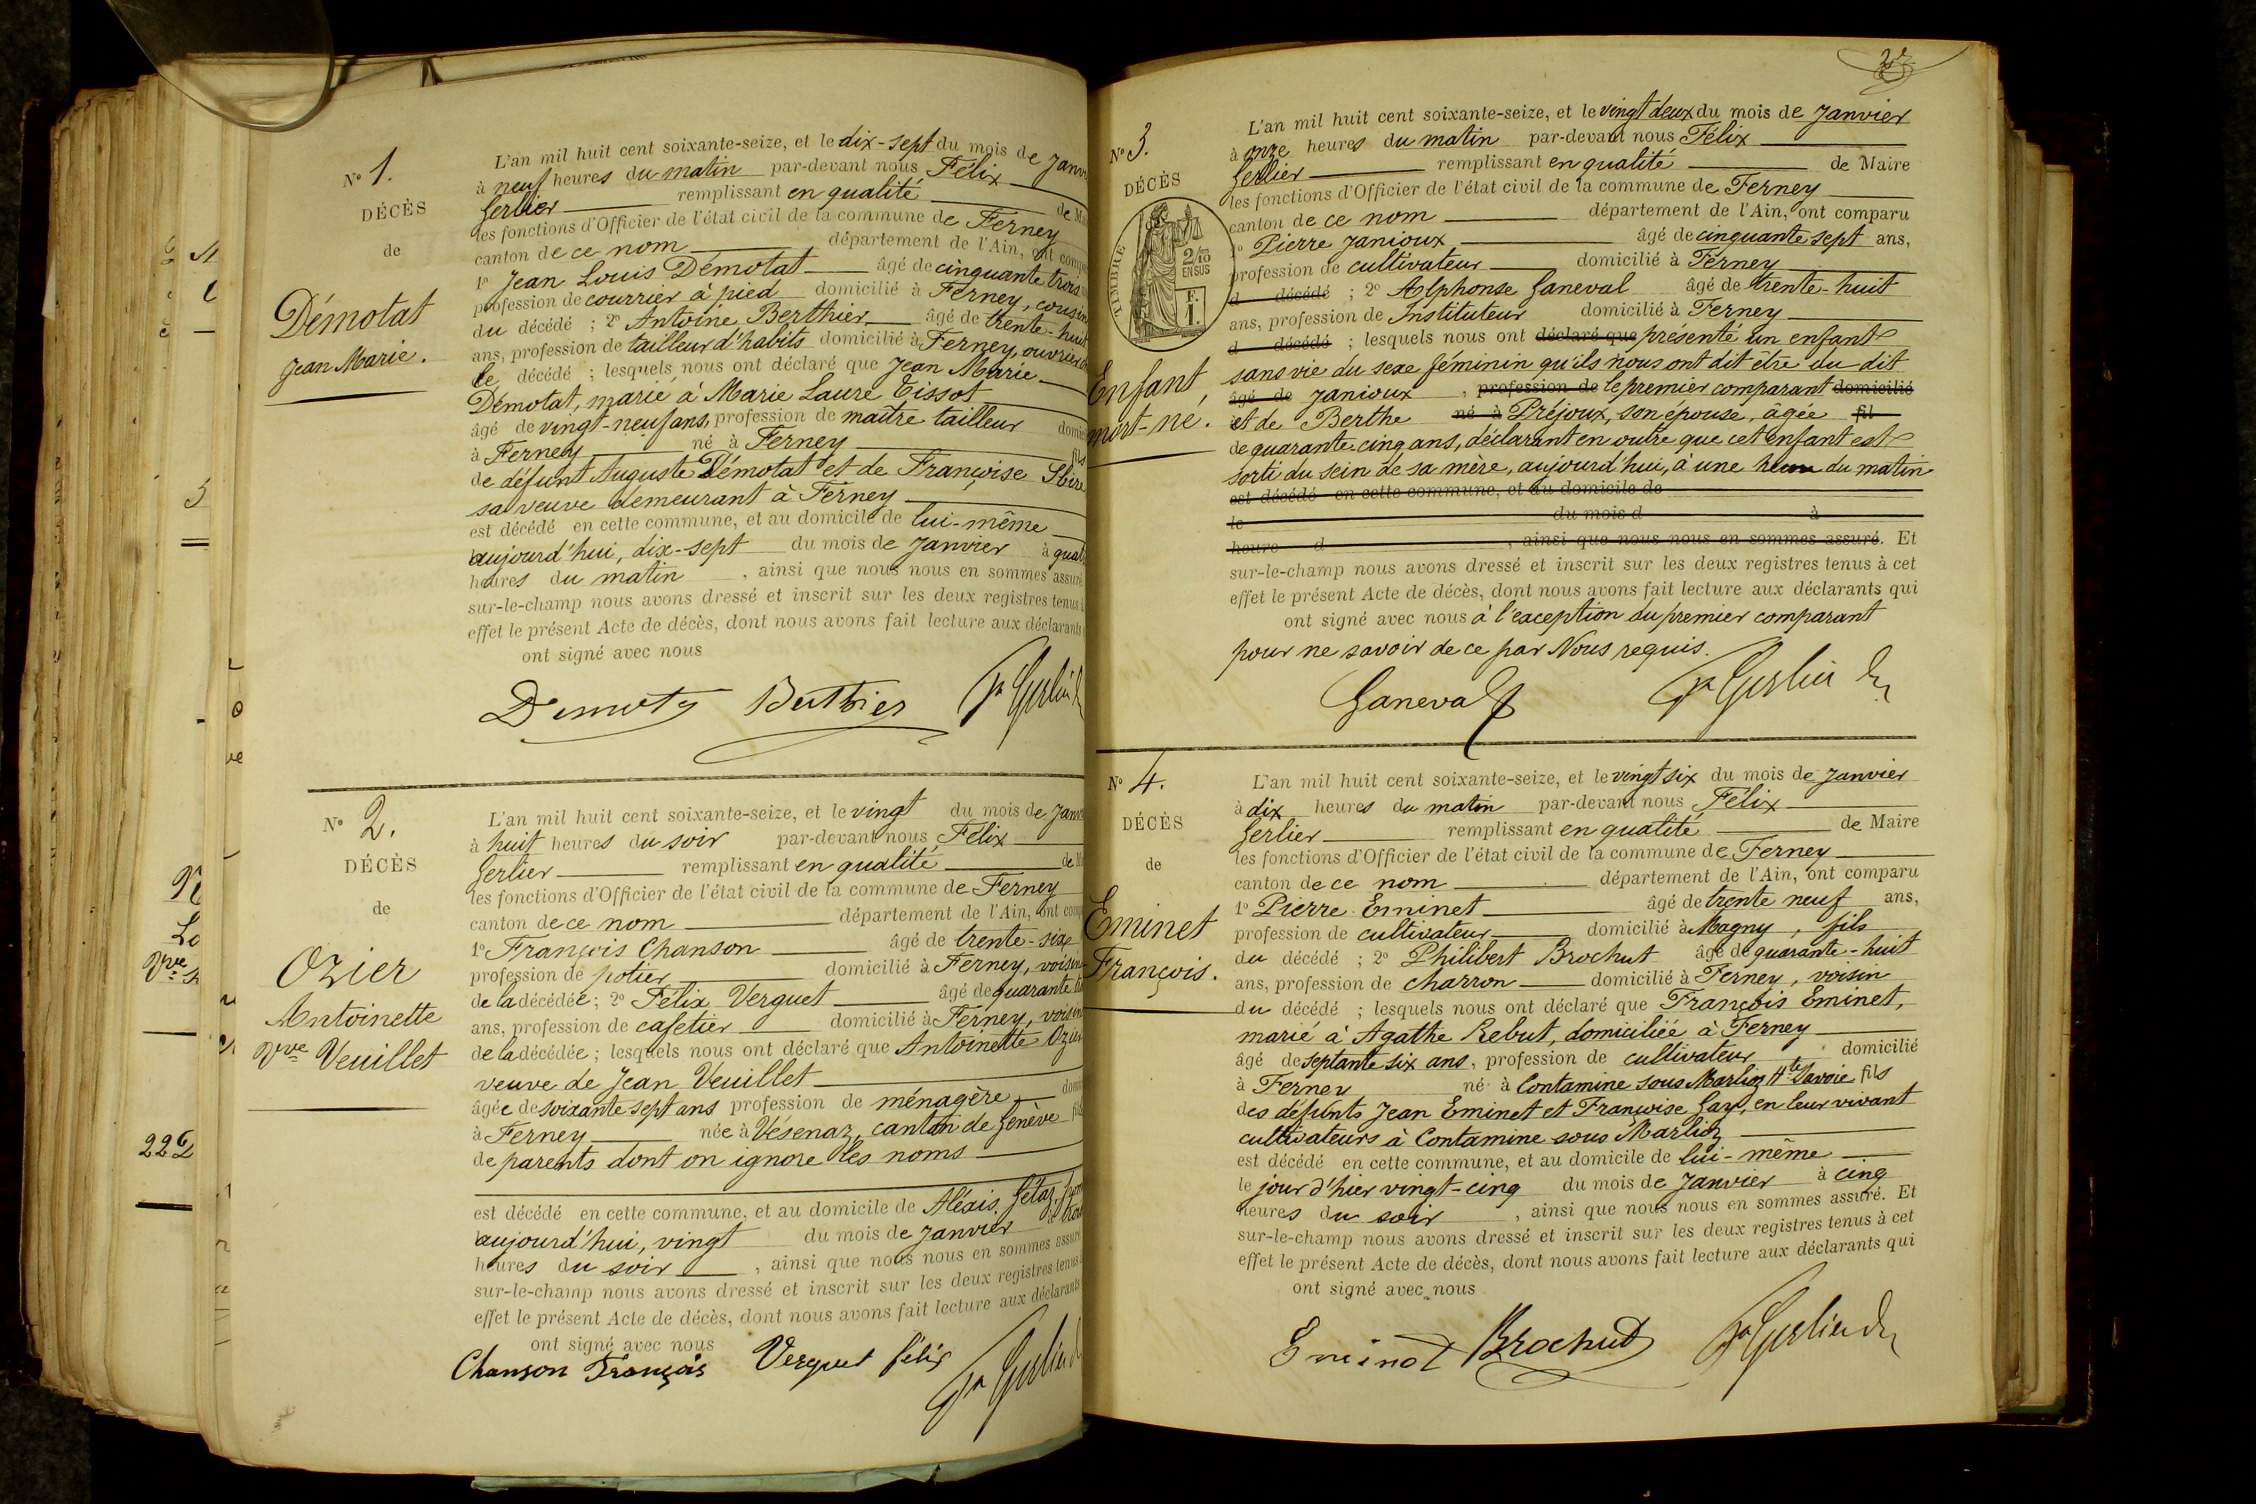 N° 1.
DÉCÈS
de
Démotat
Jean Marie.
L'an mil huit cent soixante-seize, et le dix-sept du mois de Janv
à neuf heures du matin par-devant nous Félix
Gerlier remplissant en qualité de Ma
les fonctions d'Officier de l'état civil de la commune de Ferney
canton de ce nom département de l'Ain, ont comp
1° Jean Louis Démotat âgé de cinquante trois
profession de courrier à pied domicilié à Ferney, cousin
du décédé ; 2° Antoine Berthier âgé de trente-huit
ans, profession de tailleur d'habits domicilié à Ferney, ouvrier
le décédé ; lesquels nous ont déclaré que Jean Marie
Démotat, marié à Marie Laure Tissot
âgé de vingt-neuf ans, profession de maître tailleur domi
à Ferney né à Ferney fils
de défunt Auguste Démotat et de Françoise
sa veuve demeurant à Ferney
est décédé en cette commune, et au domicile de lui-même
aujourd'hui, dix-sept du mois de Janvier à quat
heures du matin , ainsi que nous nous en sommes assuré
sur-le-champ nous avons dressé et inscrit sur les deux registres tenus
effet le présent Acte de décès, dont nous avons fait lecture aux déclarants
ont signé avec nous
Démotat Berthier Gerlier
N° 2.
DÉCÈS
de
Ozier
Antoinette
Vve Veuillet
L'an mil huit cent soixante-seize, et le vingt du mois de Janv
à huit heures du soir par-devant nous Félix
Gerlier remplissant en qualité de M
les fonctions d'Officier de l'état civil de la commune de Ferney
canton de ce nom département de l'Ain, ont comp
1° François Chanson âgé de trente-six
profession de potier domicilié à Ferney, voisin
de la décédée ; 2° Félix Verguet âgé de quarante
ans, profession de cafetier domicilié à Ferney, voisin
de la décédée ; lesquels nous ont déclaré que Antoinette Ozier
veuve de Jean Veuillet
âgée de soixante sept ans profession de ménagère dom
à Ferney née à Vésenaz, canton de Genève fil
de parents dont on ignore les noms
est décédé en cette commune, et au domicile de Aléxis Gétaz
aujourd'hui, vingt du mois de Janvier à
heures du soir , ainsi que nous nous en sommes assuré
sur-le-champ nous avons dressé et inscrit sur les deux registres tenus
effet le présent Acte de décès, dont nous avons fait lecture aux déclarants
ont signé avec nous
Chanson François Verguet félix Gerlier
N° 3.
DÉCÈS
TIMBRE
2/10
EN SUS
F.
1.
Enfant
mort-né.
L'an mil huit cent soixante-seize, et le vingt deux du mois de Janvier
à onze heures du matin par-devant nous Félix
Gerlier remplissant en qualité de Maire
les fonctions d'Officier de l'état civil de la commune de Ferney
canton de ce nom département de l'Ain, ont comparu
1° Pierre Janioux âgé de cinquante sept ans,
profession de cultivateur domicilié à Ferney
d décédé ; 2° Alphonse Ganeval âgé de trente-huit
ans, profession de Instituteur domicilié à Ferney
d décédé ; lesquels nous ont déclaré que présenté un enfant
sans vie du sexe féminin qu'ils nous ont dit être du dit
âgé de Janioux , profession de le premier comparant domicilié
et de Berthe né à Préjoux, son épouse, âgée fil
de quarante-cinq ans, déclarant en outre que cet enfant est
sorti du sein de sa mère, aujourd'hui, à une heure du matin
est décédé en cette commune, et au domicile de
le du mois d à
heure d , ainsi que nous nous en sommes assuré. Et
sur-le-champ nous avons dressé et inscrit sur les deux registres tenus à cet
effet le présent Acte de décès, dont nous avons fait lecture aux déclarants qui
ont signé avec nous à l'exception du premier comparant
pour ne savoir de ce par Nous requis.
Ganeval Gerlier
N° 4.
DÉCÈS
de
Eminet
François.
L'an mil huit cent soixante-seize, et le vingt six du mois de Janvier
à dix heures du matin par-devant nous Félix
Gerlier remplissant en qualité de Maire
les fonctions d'Officier de l'état civil de la commune de Ferney
canton de ce nom département de l'Ain, ont comparu
1° Pierre Eminet âgé de trente neuf ans,
profession de cultivateur domicilié à Magny, fils
du décédé ; 2° Philibert Brochut âgé de quarante-huit
ans, profession de charron domicilié à Ferney, voisin
du décédé ; lesquels nous ont déclaré que François Eminet,
marié à Agathe Rebut, domiciliée à Ferney
âgé de septante six ans, profession de cultivateur domicilié
à Ferney né à Contamine sous Marlioz Hte Savoie fils
des défunts Jean Eminet et Françoise Gay, en leur vivant
cultivateurs à Contamine sous Marlioz
est décédé en cette commune, et au domicile de lui-même
le jour d'hier vingt-cinq du mois de Janvier à cinq
heures du soir , ainsi que nous nous en sommes assuré. Et
sur-le-champ nous avons dressé et inscrit sur les deux registres tenus à cet
effet le présent Acte de décès, dont nous avons fait lecture aux déclarants qui
ont signé avec nous
Eminet Brochut Gerlier